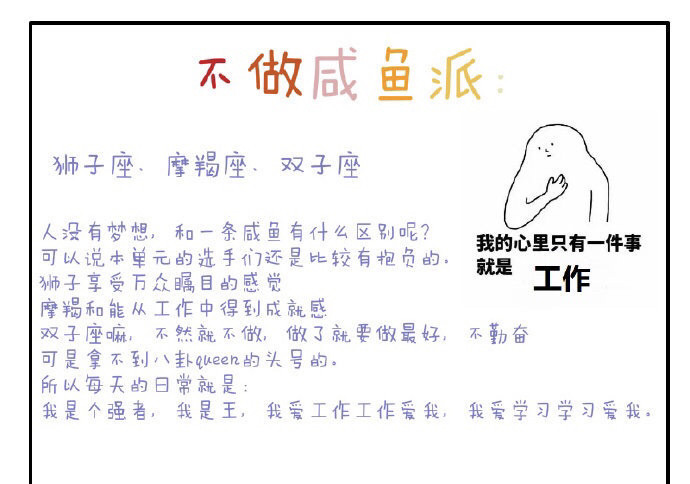 不做咸鱼派:
狮子座、摩羯座、双子座
人没有梦想,和一条咸鱼有什么区别呢?
可以说本单元的选手们还是比较有抱负的。
狮子享受万众瞩目的感觉
摩羯和能从工作中得到成就感
双子座嘛,不然就不做,做了就要做最好,不勤奋
可是拿不到八卦queen的头号的。
所以每天的日常就是:
我是个强者,我是王,我爱工作工作爱我,我爱学习学习爱我。
我的心里只有一件事
就是 工作